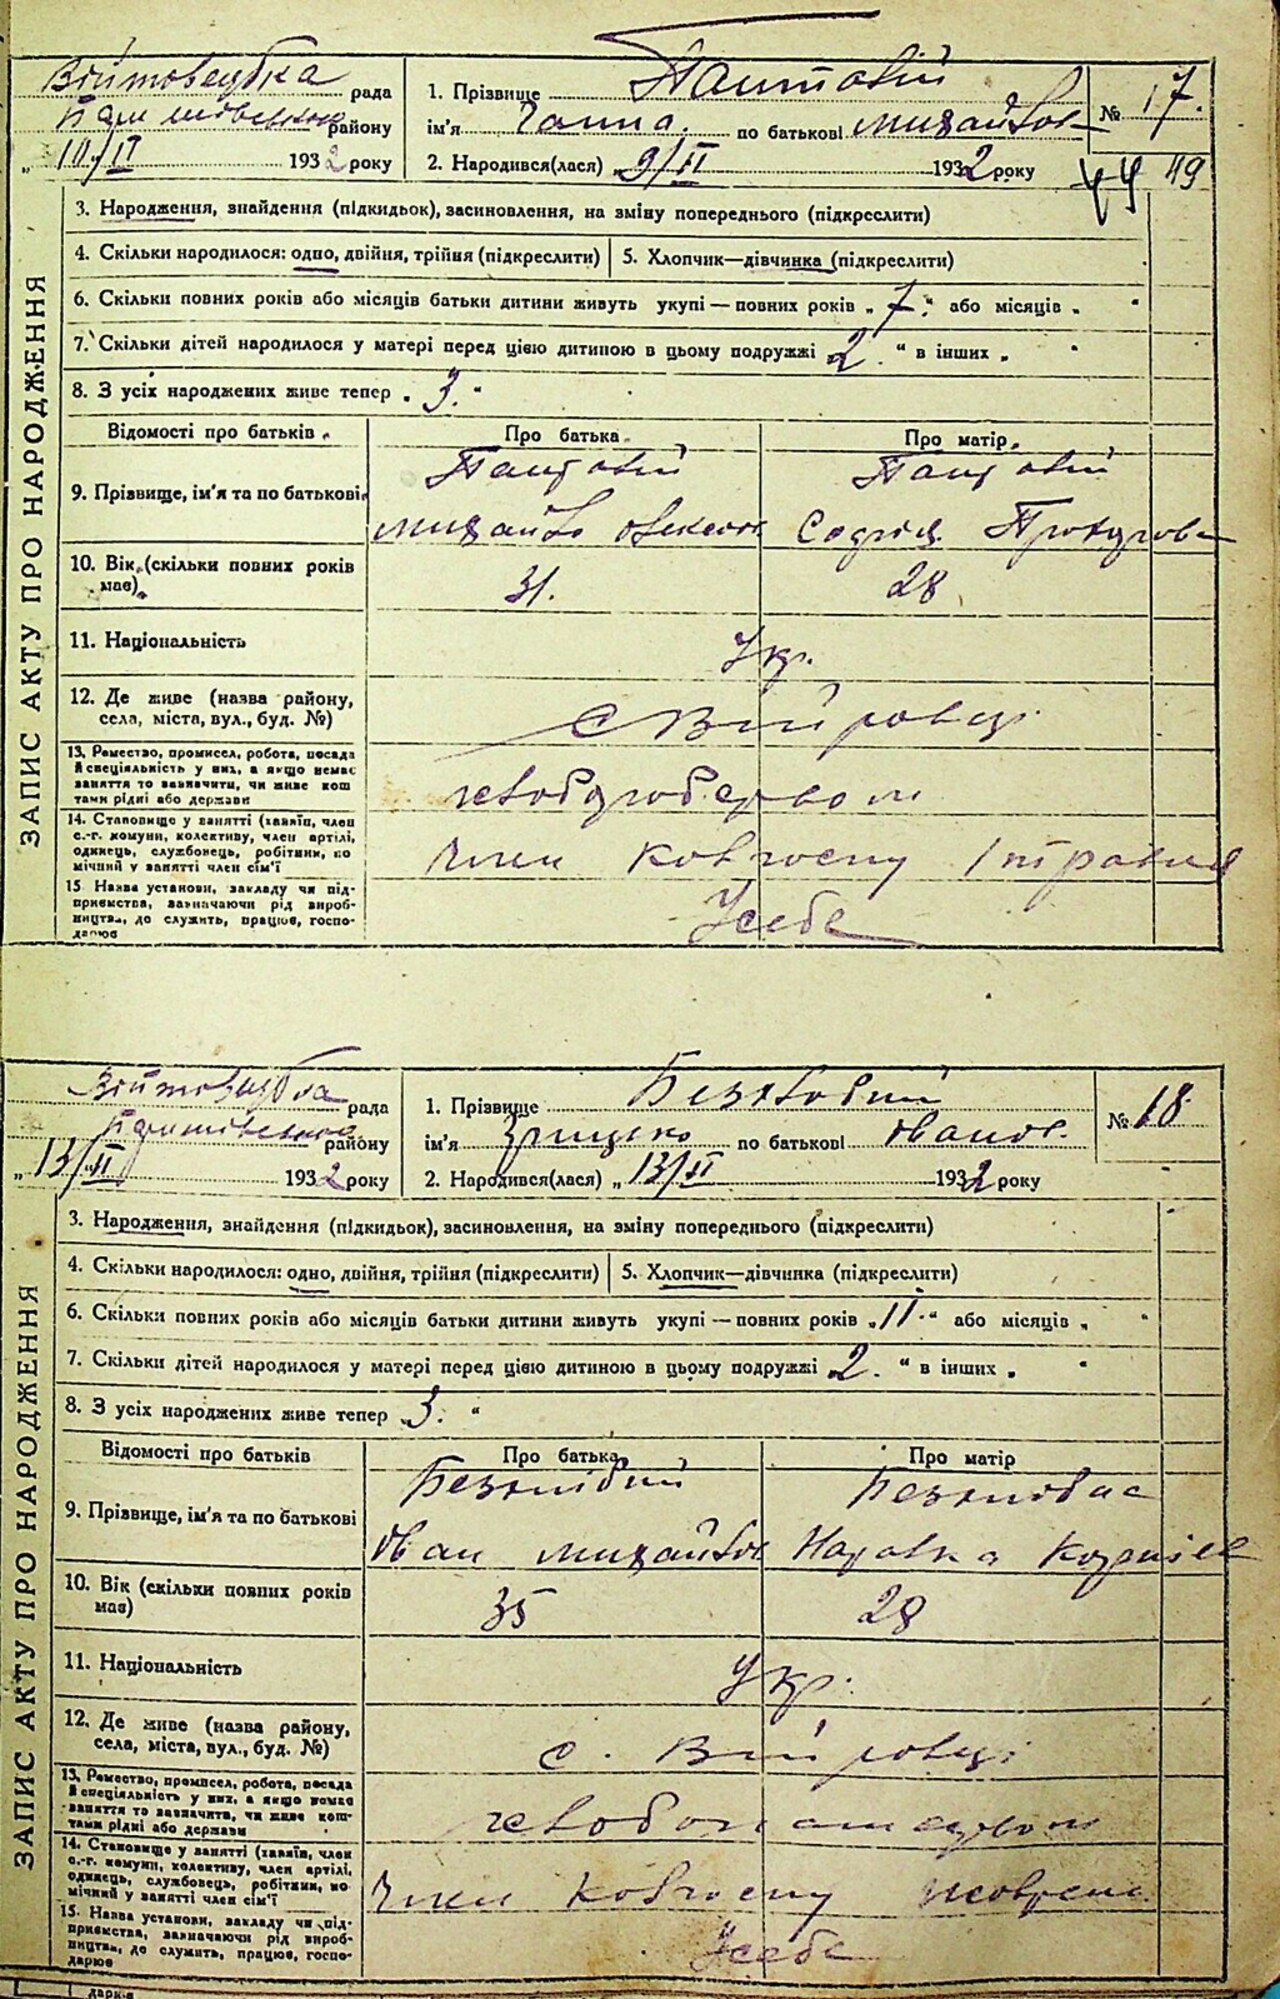 Війтовецька рада
району
10/II 1932 року
1. Прізвище Паштовій
ім'я Ганна. по батькові Михайлов
2. Народився(лася) „ 9/II 1932 року
№ 17.
49
ЗАПИС АКТУ ПРО НАРОДЖЕННЯ
3. Народження, знайдення (підкидьок), засиновлення, на зміну попереднього (підкреслити)
4. Скільки народилося: одно, двійня, трійня (підкреслити) 5. Хлопчик—дівчинка (підкреслити)
6. Скільки повних років або місяців батьки дитини живуть укупі — повних років „ 7 “ або місяців „ “
7. Скільки дітей народилося у матері перед цією дитиною в цьому подружжі 2. “ в інших „ “
8. З усіх народжених живе тепер „ 3. “
Відомості про батьків Про батька Про матір
9. Прізвище, ім'я та по батькові
Михайло Софія
10. Вік (скільки повних років має) 31. 28
11. Національність Укр.
12. Де живе (назва району, села, міста, вул., буд. №) с Війтовці
13. Ремество, промисел, робота, посада
й спеціяльність у них, а якщо немає
заняття то зазначити, чи живе кош
тами рідні або держави
хлібороб
14. Становище у занятті (хазяїн, член
с.-г. комуни, колективу, член артілі,
одинець, службовець, робітник, по
мічний у занятті член сім'ї
член колгоспу 1 травня
15 Назва установи, закладу чи під-
приємства, зазначаючи рід вироб-
ництва, до служить, працює, госпо-
дарює
У себе
Війтовецька рада
району
„ 13/II 1932 року
1. Прізвище Безхлібний
ім'я Грицько по батькові Іванов.
2. Народився(лася) „ 13/II 1932 року
№ 18
ЗАПИС АКТУ ПРО НАРОДЖЕННЯ
3. Народження, знайдення (підкидьок), засиновлення, на зміну попереднього (підкреслити)
4. Скільки народилося: одно, двійня, трійня (підкреслити) 5. Хлопчик—дівчинка (підкреслити)
6. Скільки повних років або місяців батьки дитини живуть укупі — повних років „ 11. “ або місяців „ “
7. Скільки дітей народилося у матері перед цією дитиною в цьому подружжі 2. “ в інших „ “
8. З усіх народжених живе тепер „ 3. “
Відомості про батьків Про батька Про матір
9. Прізвище, ім'я та по батькові
Іван Михайлов
10. Вік (скільки повних років має) 35 28
11. Національність Укр.
12. Де живе (назва району, села, міста, вул., буд. №) с. Війтовці
13. Ремество, промисел, робота, посада
й спеціяльність у них, а якщо немає
заняття то зазначити, чи живе кош-
тами рідні або держави
14. Становище у занятті (хазяїн, член
с.-г. комуни, колективу, член артілі,
одинець, службовець, робітник, по
мічний у занятті член сім'ї
член колгоспу
15. Назва установи, закладу чи під-
приємства, зазначаючи рід вироб-
ництва, до служить, працює, госпо-
дарює
У себе